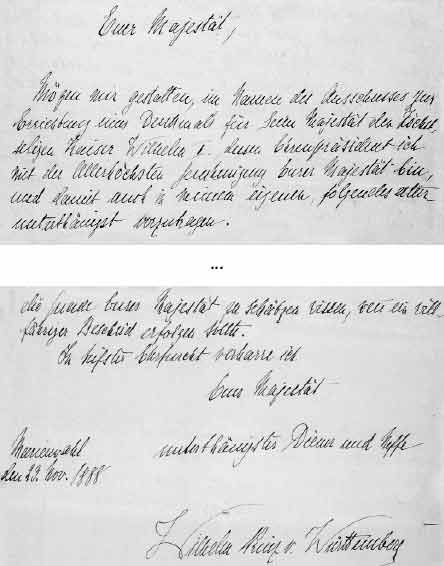 Eurer Majestät,
Mögen mir gestatten, im Namen des Ausschusses zur
Errichtung eines Denkmals für Seine Majestät den Höchst
seligen Kaiser Wilhelm I. dessen Ehrenpräsident ich
mit der Allerhöchsten Genehmigung Eurer Majestät bin,
und damit auch in meinem eigenen, folgendes aller
unterthänigst vorzutragen.
...
die Gnade Eurer Majestät zu schätzen wissen, wenn ein will
fähriger Bescheid erfolgen sollte.
In tiefster Ehrfurcht verharre ich
Eurer Majestät
unterthänigster Diener und Neffe
Marienwahl
den 23. Nov. 1888
Wilhelm Prinz v. Württemberg